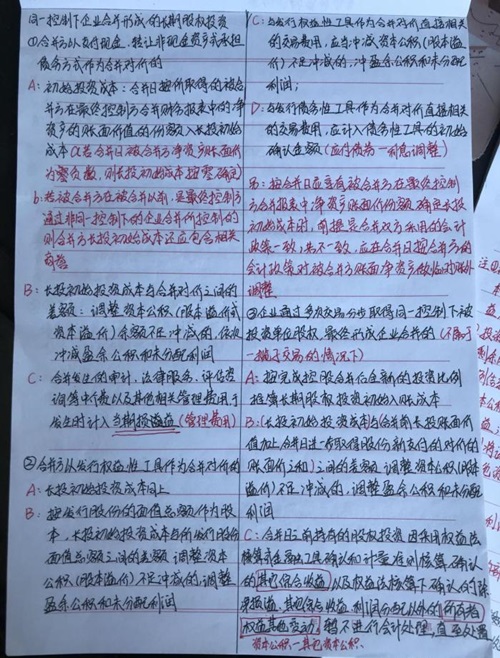 同一控制下企业合并形成的长期股权投资
①合并方以支付现金、转让非现金资产或承担
债务方式作为合并对价的
A: 初始投资成本: 合并日按取得的被合
并方在最终控制方合并财务报表中的净
资产的账面价值的份额入长投初始
成本(若合并日被合并方净资产账面价
为负数,则长投初始成本按零确定)
b: 若被合并方在被合并以前,是最终控制方
通过非同一控制下的企业合并所控制的
则合并方长投初始成本还应包含相关
商誉
B: 长投初始投资成本与合并对价之间的
差额: 调整资本公积(股本溢价或
资本溢价)余额不足冲减的,依次
冲减盈余公积和未分配利润
C: 合并发生的审计、法律服务、评估咨
询等中介费以及其他相关管理费用于
发生时计入当期损益(管理费用)
②合并方以发行权益性工具作为合并对价的
A: 长投初始投资成本同上
B: 按发行股份的面值总额作为股
本,长投初始投资成本与所发行股份
面值总额之间的差额 调整资本
公积(股本溢价)不足冲减的,调整
盈余公积和未分配利润
C: 与发行权益性工具作为合并对价直接相关
的交易费用,应当冲减资本公积(股本溢
价)不足冲减的,冲盈余公积和未分配
利润;
D: 与发行债务性工具作为合并对价直接相关
的交易费用,应计入债务性工具的初始
确认金额(应付债券—利息调整)
B: 按合并日应享有被合并方在最终控制
方合并报表中净资产账面价份额确定长投
初始成本时,前提是合并双方采用的会计
政策一致,若不一致,应在合并日按合并方的
会计政策对被合并方账面净资产做临时账外
调整
③企业通过多次交易分步取得同一控制下被
投资单位股权,最终形成企业合并的(不属于
一揽子交易的情况下)
A: 按完成控股合并后全新的投资比例
推算长期股权投资初始入账成本
B: (长投初始投资成本)与(合并前长投账面价
值加上合并日进一步取得股份新支付的对价的
账面价之和)之间的差额 调整资本公积(股本
溢价)不足冲减的,调整盈余公积和未分配
利润
C: 合并日之前持有的股权投资 因采用权益法
核算或金融工具确认和计量准则核算确认
的其他综合收益 以及权益法核算下确认的除
净损益、其他综合收益、利润分配以外的所有者
权益其他变动,暂不进行会计处理,直至处置
资本公积—其他资本公积.